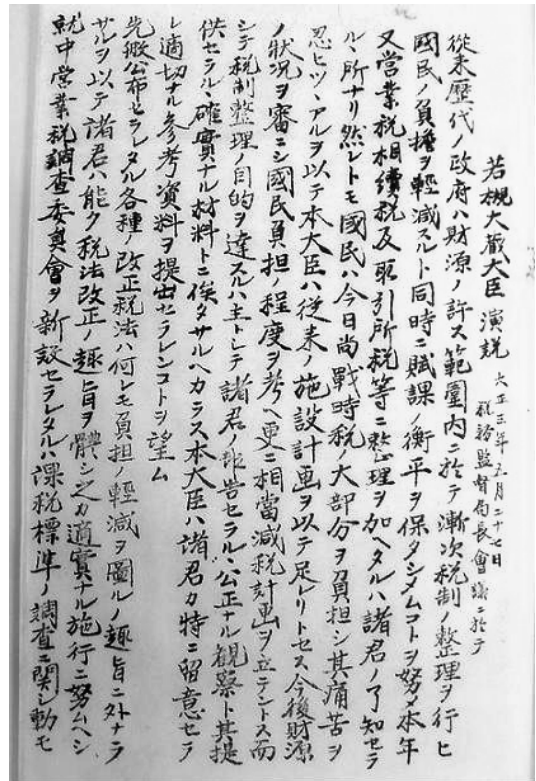 若槻大藏大臣演説
大正三年五月二十七日
税務監督局長會議ニ於テ
從来歴代ノ政府ハ財源ノ許ス範圍内ニ於テ漸次税制ノ整理ヲ行ヒ
國民ノ負擔ヲ輕減スルト同時ニ賦課ノ衡平ヲ保タシメムコトヲ努メ本年
又営業税相續税及取引所税等ニ整理ヲ加ヘタルハ諸君ノ了知セラ
ルヽ所ナリ然レトモ國民ハ今日尚戰時税ノ大部分ヲ負担シ其痛苦ヲ
忍ヒツヽアルヲ以テ本大臣ハ従来ノ施設計画ヲ以テ足レリトセス今後財源
ノ状況ヲ審ニシ國民負担ノ程度ヲ考ヘ更ニ相當減税計画ヲ立テントス而
シテ税制整理ノ目的ヲ達スルハ主トシテ諸君ノ報告セラルヽ公正ナル観察ト其提
供セラルヽ確實ナル材料トニ俟タサルヘカラス本大臣ハ諸君カ特ニ留意セラ
レ適切ナル参考資料ヲ提出セラレンコトヲ望ム
先般公布セラレタル各種ノ改正税法ハ何レモ負担ノ輕減ヲ圖ルノ趣旨ニ外ナラ
サルヲ以テ諸君ハ能ク税法改正ノ趣旨ヲ體シ之カ適實ナル施行ニ努ムヘシ
就中営業税調査委員會ヲ新設セラレタルハ課税標準ノ調査ニ関シ動モ